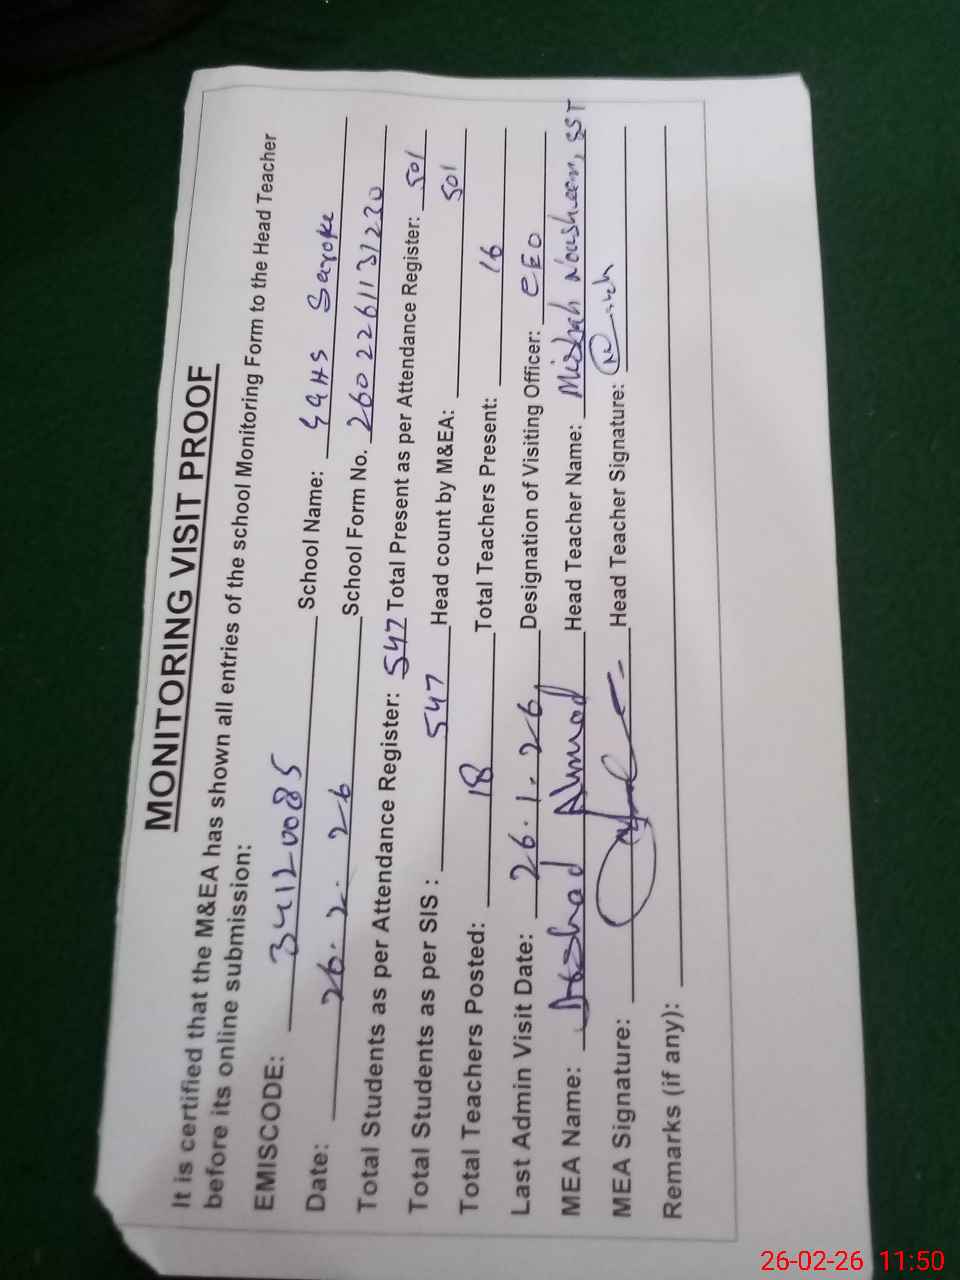 MONITORING VISIT PROOF
It is certified that the M&EA has shown all entries of the school Monitoring Form to the Head Teacher
before its online submission:
EMISCODE: 34120085 School Name: GGHS Saroke
Date: 26.2.26 School Form No. 2602261131230
Total Students as per Attendance Register: 547 Total Present as per Attendance Register: 501
Total Students as per SIS : 547 Head count by M&EA: 501
Total Teachers Posted: 18 Total Teachers Present: 16
Last Admin Visit Date: 26.1.26 Designation of Visiting Officer: CEO
MEA Name: Ahmad Head Teacher Name: Nousheen, SST
MEA Signature: Head Teacher Signature:
Remarks (if any):
26-02-26 11:50